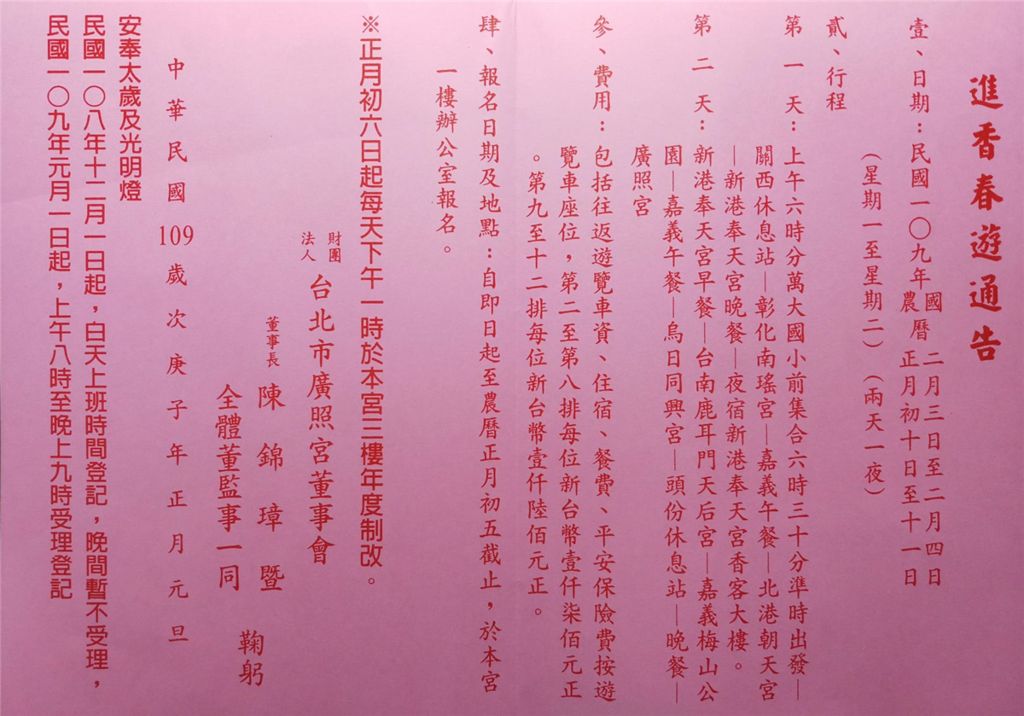 進香春遊通告
壹、日期：民國一〇九年國曆二月三日至二月四日
農曆正月初十日至十一日
（星期一至星期二）（兩天一夜）
貳、行程
第一天：上午六時分萬大國小前集合六時三十分準時出發—
關西休息站—彰化南瑤宮—嘉義午餐—北港朝天宮
—新港奉天宮晚餐—夜宿新港奉天宮香客大樓。
第二天：新港奉天宮早餐—台南鹿耳門天后宮—嘉義梅山公
園—嘉義午餐—烏日同興宮—頭份休息站—晚餐—
廣照宮
參、費用：包括往返遊覽車資、住宿、餐費、平安保險費按遊
覽車座位，第二至第八排每位新台幣壹仟柒佰元正
。第九至十二排每位新台幣壹仟陸佰元正。
肆、報名日期及地點：自即日起至農曆正月初五截止，於本宮
一樓辦公室報名。
※正月初六日起每天下午一時於本宮三樓年度制改。
財團法人台北市廣照宮董事會
董事長陳錦璋暨
全體董監事一同
鞠躬
中華民國109歲次庚子年正月元旦
安奉太歲及光明燈
民國一〇八年十二月一日起，白天上班時間登記，晚間暫不受理，
民國一〇九年元月一日起，上午八時至晚上九時受理登記